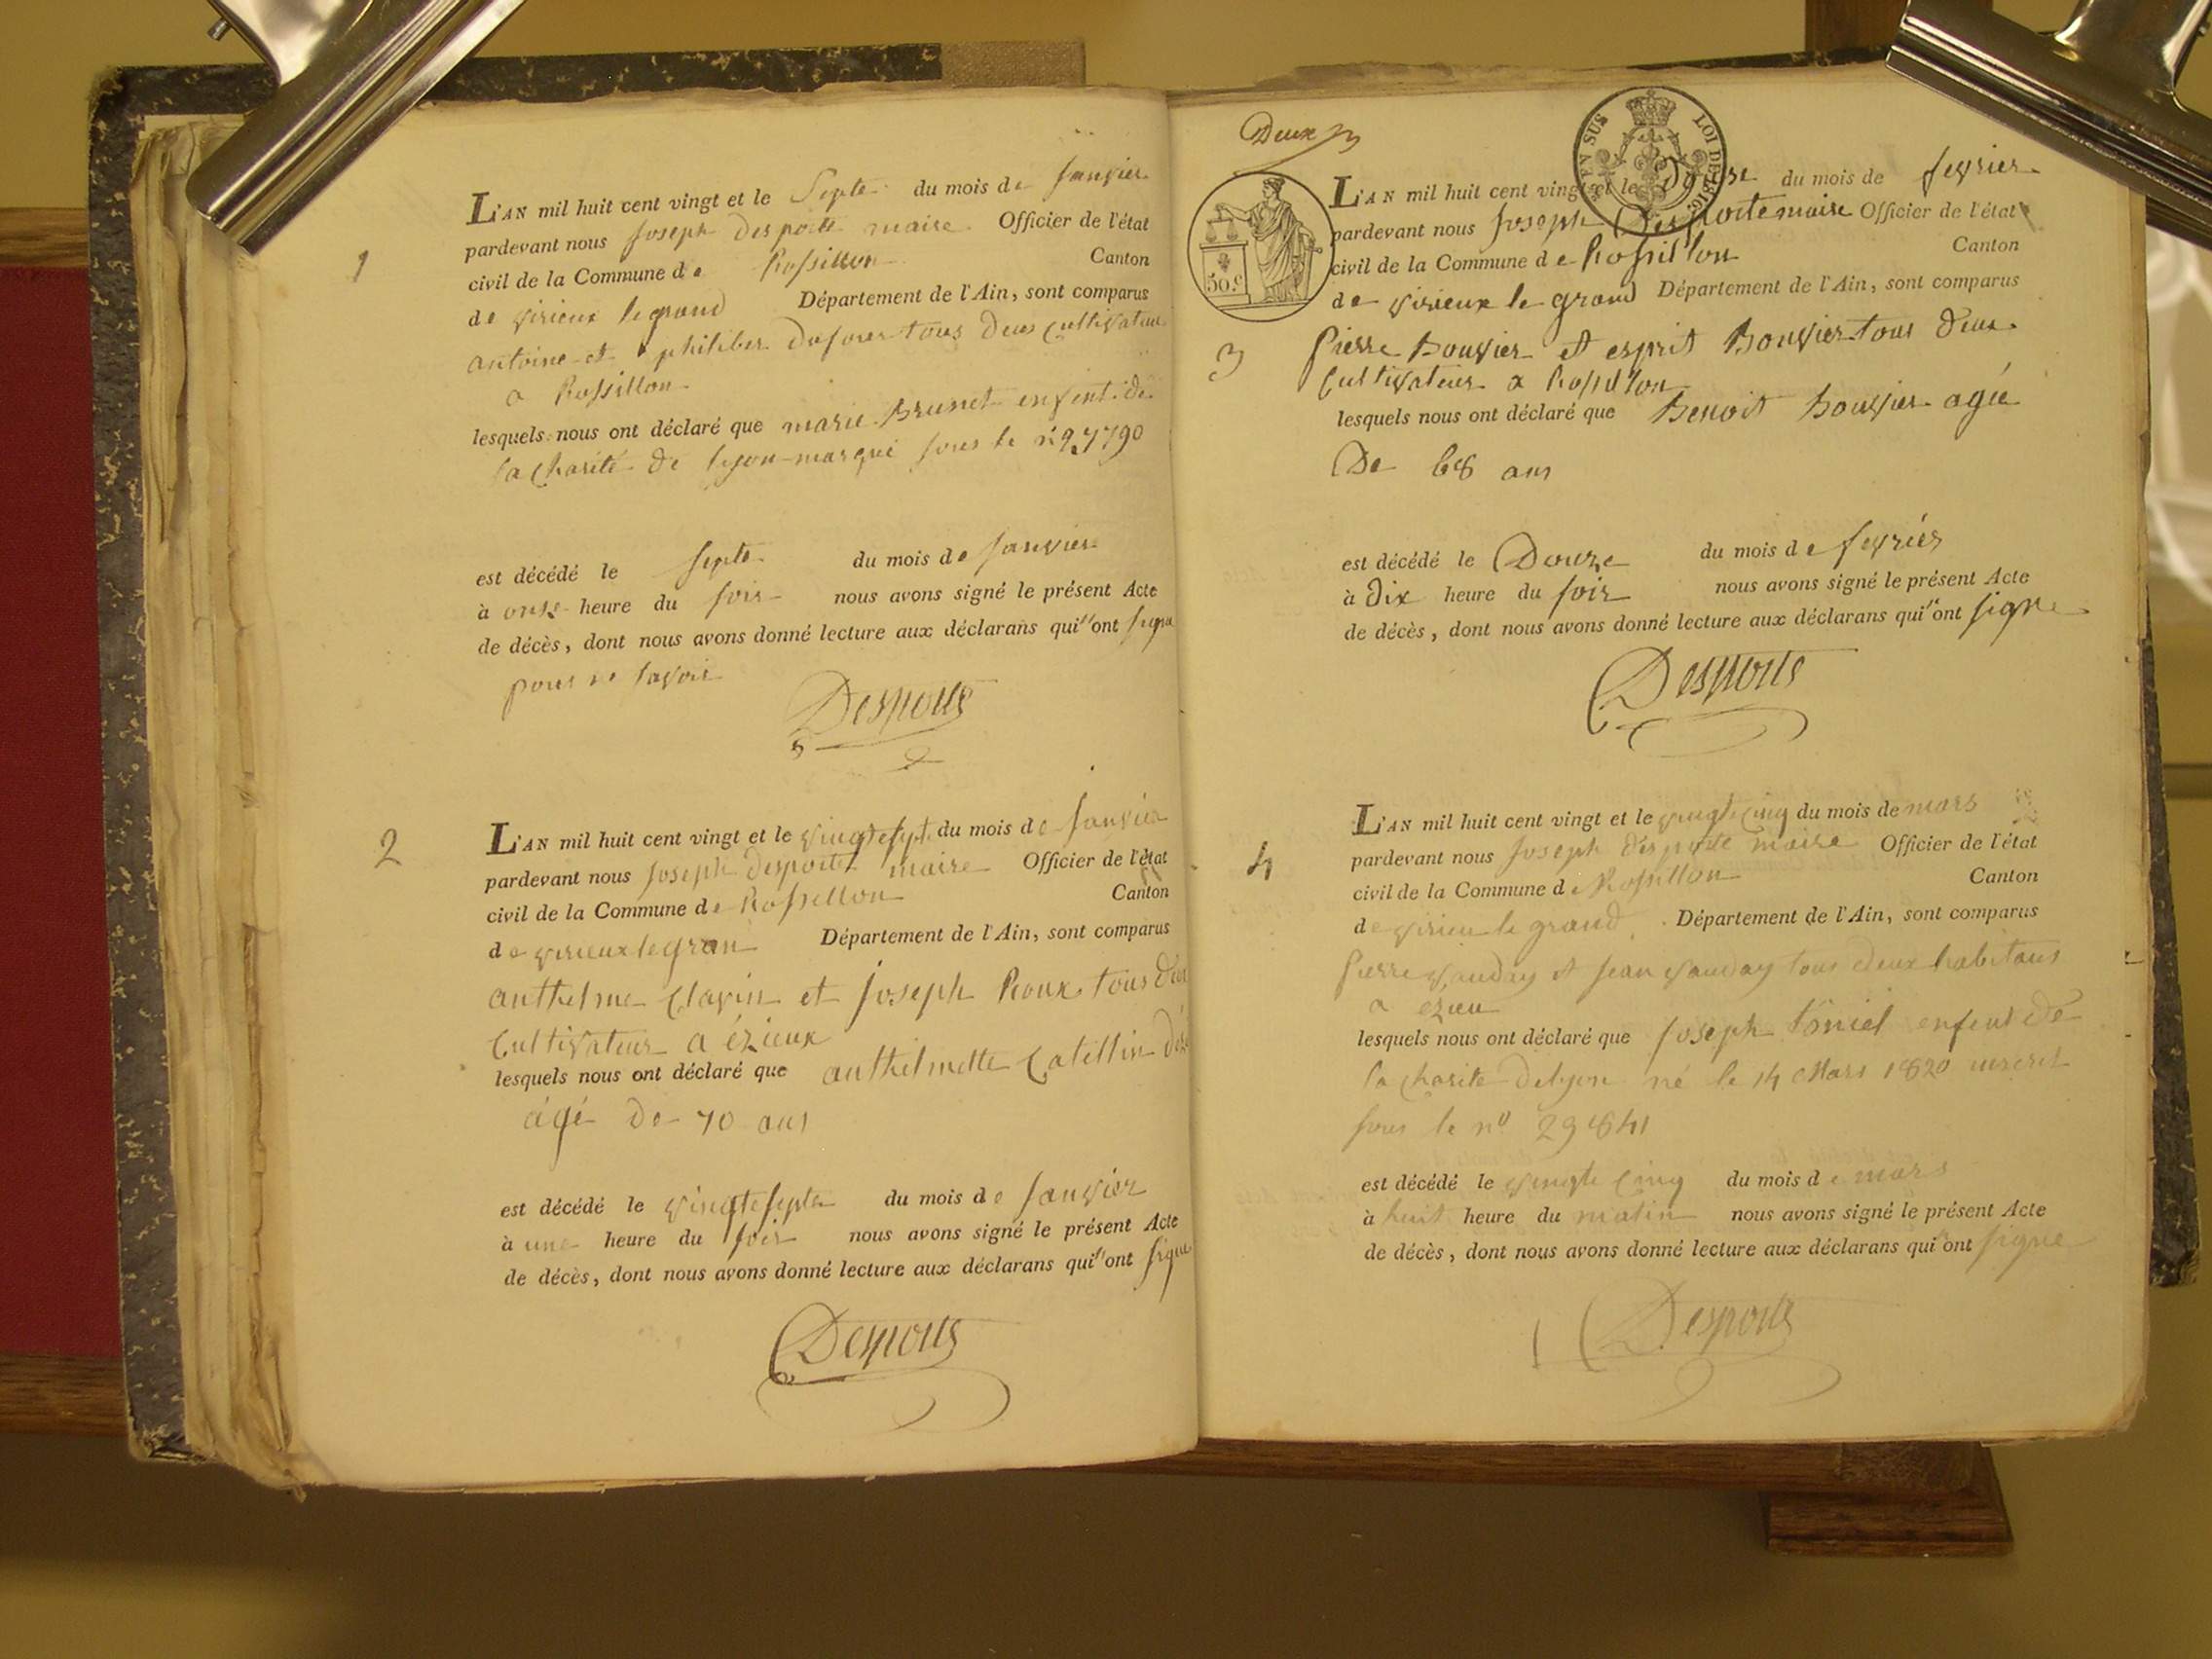 1
L'AN mil huit cent vingt et le Septe du mois de janvier
pardevant nous joseph desporte maire Officier de l'état
civil de la Commune de Rossillon Canton
de virieux le grand Département de l'Ain, sont comparus
antoine et philiber tous deux cultivateur
a Rossillon
lesquels nous ont déclaré que marie Brunet enfent de
la Charité de lyon marqué sous le
est décédé le septe du mois de janvier
à onse heure du soir nous avons signé le présent Acte
de décès, dont nous avons donné lecture aux déclarans qui ont signe
pour ne savoir
Desporte
2
L'AN mil huit cent vingt et le vingtesept du mois de janvier
pardevant nous joseph desporte maire Officier de l'état
civil de la Commune de Rossillon Canton
de virieux le gran Département de l'Ain, sont comparus
anthelme Clavin et joseph Roux tous deux
Cultivateur a ézieux
lesquels nous ont déclaré que anthelmette Catillin
âgé de 70 ans
est décédé le vingtesepte du mois de janvier
à une heure du soir nous avons signé le présent Acte
de décès, dont nous avons donné lecture aux déclarans qui ont signe
Desporte
Deux
EN SUS LOI DE 1816.
50.c
3
L'AN mil huit cent vingt et le du mois de fevrier
pardevant nous joseph Desporte maire Officier de l'état
civil de la Commune de Rossillon Canton
de virieux le grand Département de l'Ain, sont comparus
Pierre Bouvier et esprit Bouvier tous deux
Cultivateur a Rossillon
lesquels nous ont déclaré que Benoit Bouvier agée
De 68 ans
est décédé le Douze du mois de fevriér
à Dix heure du soir nous avons signé le présent Acte
de décès, dont nous avons donné lecture aux déclarans qui ont signe
Desporte
4
L'AN mil huit cent vingt et le vingte cinq du mois de mars
pardevant nous joseph desporte maire Officier de l'état
civil de la Commune de Rossillon Canton
de virieu le grand Département de l'Ain, sont comparus
Pierre vauday et jean vauday tous deux habitans
a ezieu
lesquels nous ont déclaré que joseph enfent de
la charite de lyon né le 14 Mars 1820 inscrit
sous le n° 29841
est décédé le vingte cinq du mois de mars
à huit heure du matin nous avons signé le présent Acte
de décès, dont nous avons donné lecture aux déclarans qui ont signe
Desporte